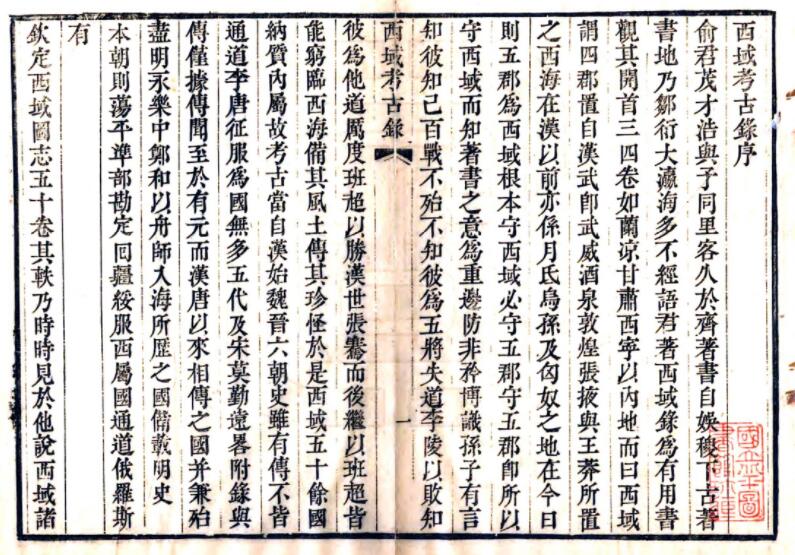 西域考古錄序
俞君茂才浩與予同里客久於齊著書自娛稷下古著
書地乃鄒衍大瀛海多不經語君著西域錄爲有用書
觀其開首三四卷如蘭涼甘肅西寧以內地而曰西域
謂四郡置自漢武卽武威酒泉敦煌張掖與王莽所置
之西海在漢以前亦係月氏烏孫及匈奴之地在今日
則五郡爲西域根本守西域必守五郡守五郡卽所以
守西域而知著書之意爲重邊防非矜博識孫子有言
知彼知己百戰不殆不知彼爲五將失道李陵以敗知
西域考古錄
一
彼爲他道厲度班超以勝漢世張騫而後繼以班超皆
能窮臨西海備其風土傳其珍怪於是西域五十餘國
納質內屬故考古當自漢始魏晉六朝史雖有傳不皆
通道李唐征服爲國無多五代及宋莫勤遠畧附錄與
傳僅據傳聞至於有元而漢唐以來相傳之國并兼殆
盡明永樂中鄭和以舟師入海所歷之國備載明史
本朝則蕩平準部勘定回疆綏服西屬國通道俄羅斯
有
欽定西域圖志五十卷其軼乃時時見於他說西域諸